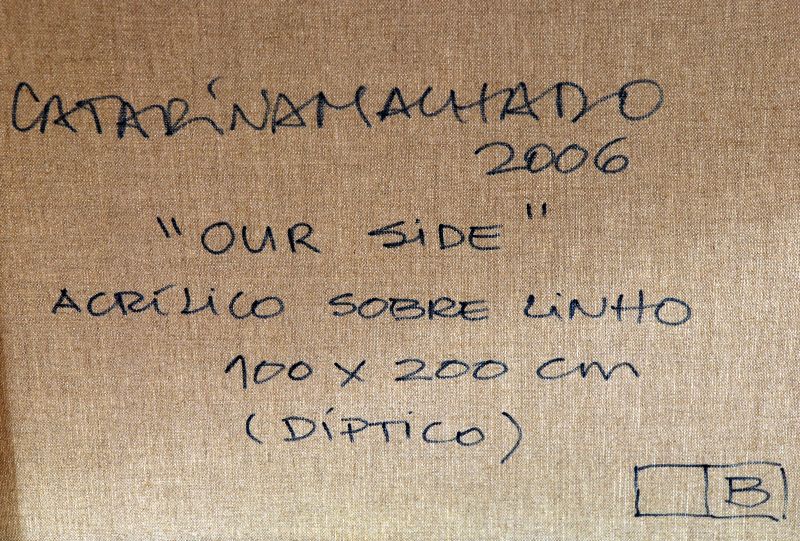 CATARINAMACHADO
2006
"OUR SIDE"
ACRÍLICO SOBRE LINHO
100 x 200 cm
(DÍPTICO)
B